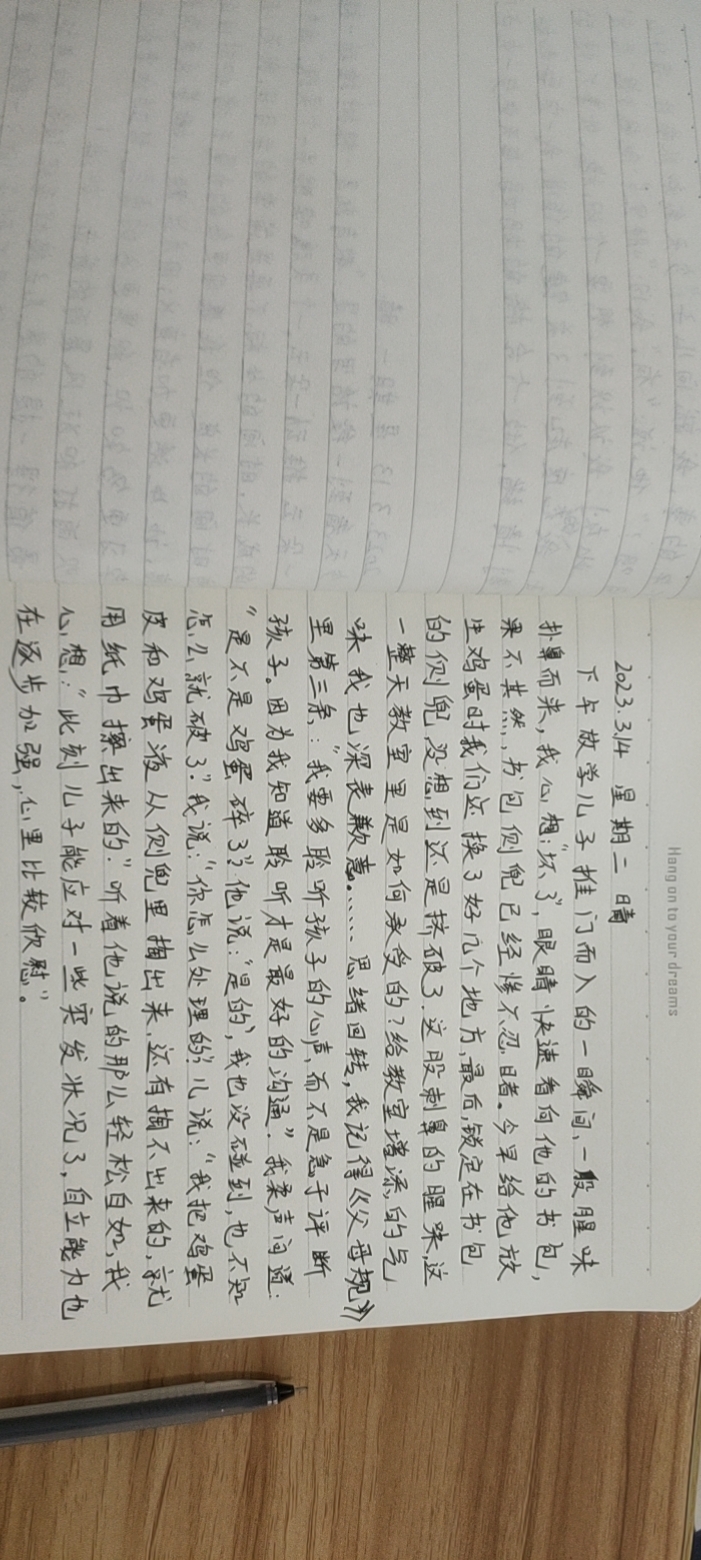 Hang on to your dreams
2023.3.14 星期二 晴
下午放学儿子推门而入的一瞬间,一股腥味
扑鼻而来,我心想:"坏了",眼睛快速看向他的书包,
果不其然,书包侧兜已经惨不忍睹。今早给他放
生鸡蛋时我们还换了好几个地方,最后,锁定在书包
的侧兜,没想到还是挤破了.这股刺鼻的腥味,这
一整天教室里是如何承受的?给教室增添的气
味我也深表歉意。……思绪回转,我记得《父母规》
里第三条,:"我要多聆听孩子的心声,而不是急于评断
孩子。因为我知道聆听才是最好的沟通".我柔声问道:
"是不是鸡蛋碎了?"他说:"是的,我也没碰到,也不知
怎么就破了."我说:"你怎么处理的?"儿说:"我把鸡蛋
皮和鸡蛋液从侧兜里掏出来,还有掏不出来的,就
用纸巾擦出来的."听着他说的那么轻松自如,我
心想:"此刻儿子能应对一些突发状况了,自立能力也
在逐步加强,心里比较欣慰"。